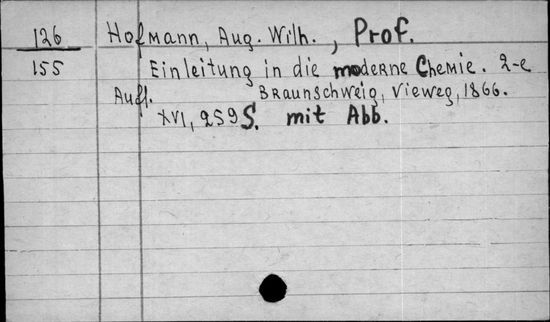 126 Hofmann, Aug. Wilh., Prof.
155 Einleitung in die moderne Chemie. 2-e
Aufl. Braunschweig, Vieweg, 1866.
XVI, 259 S. mit Abb.